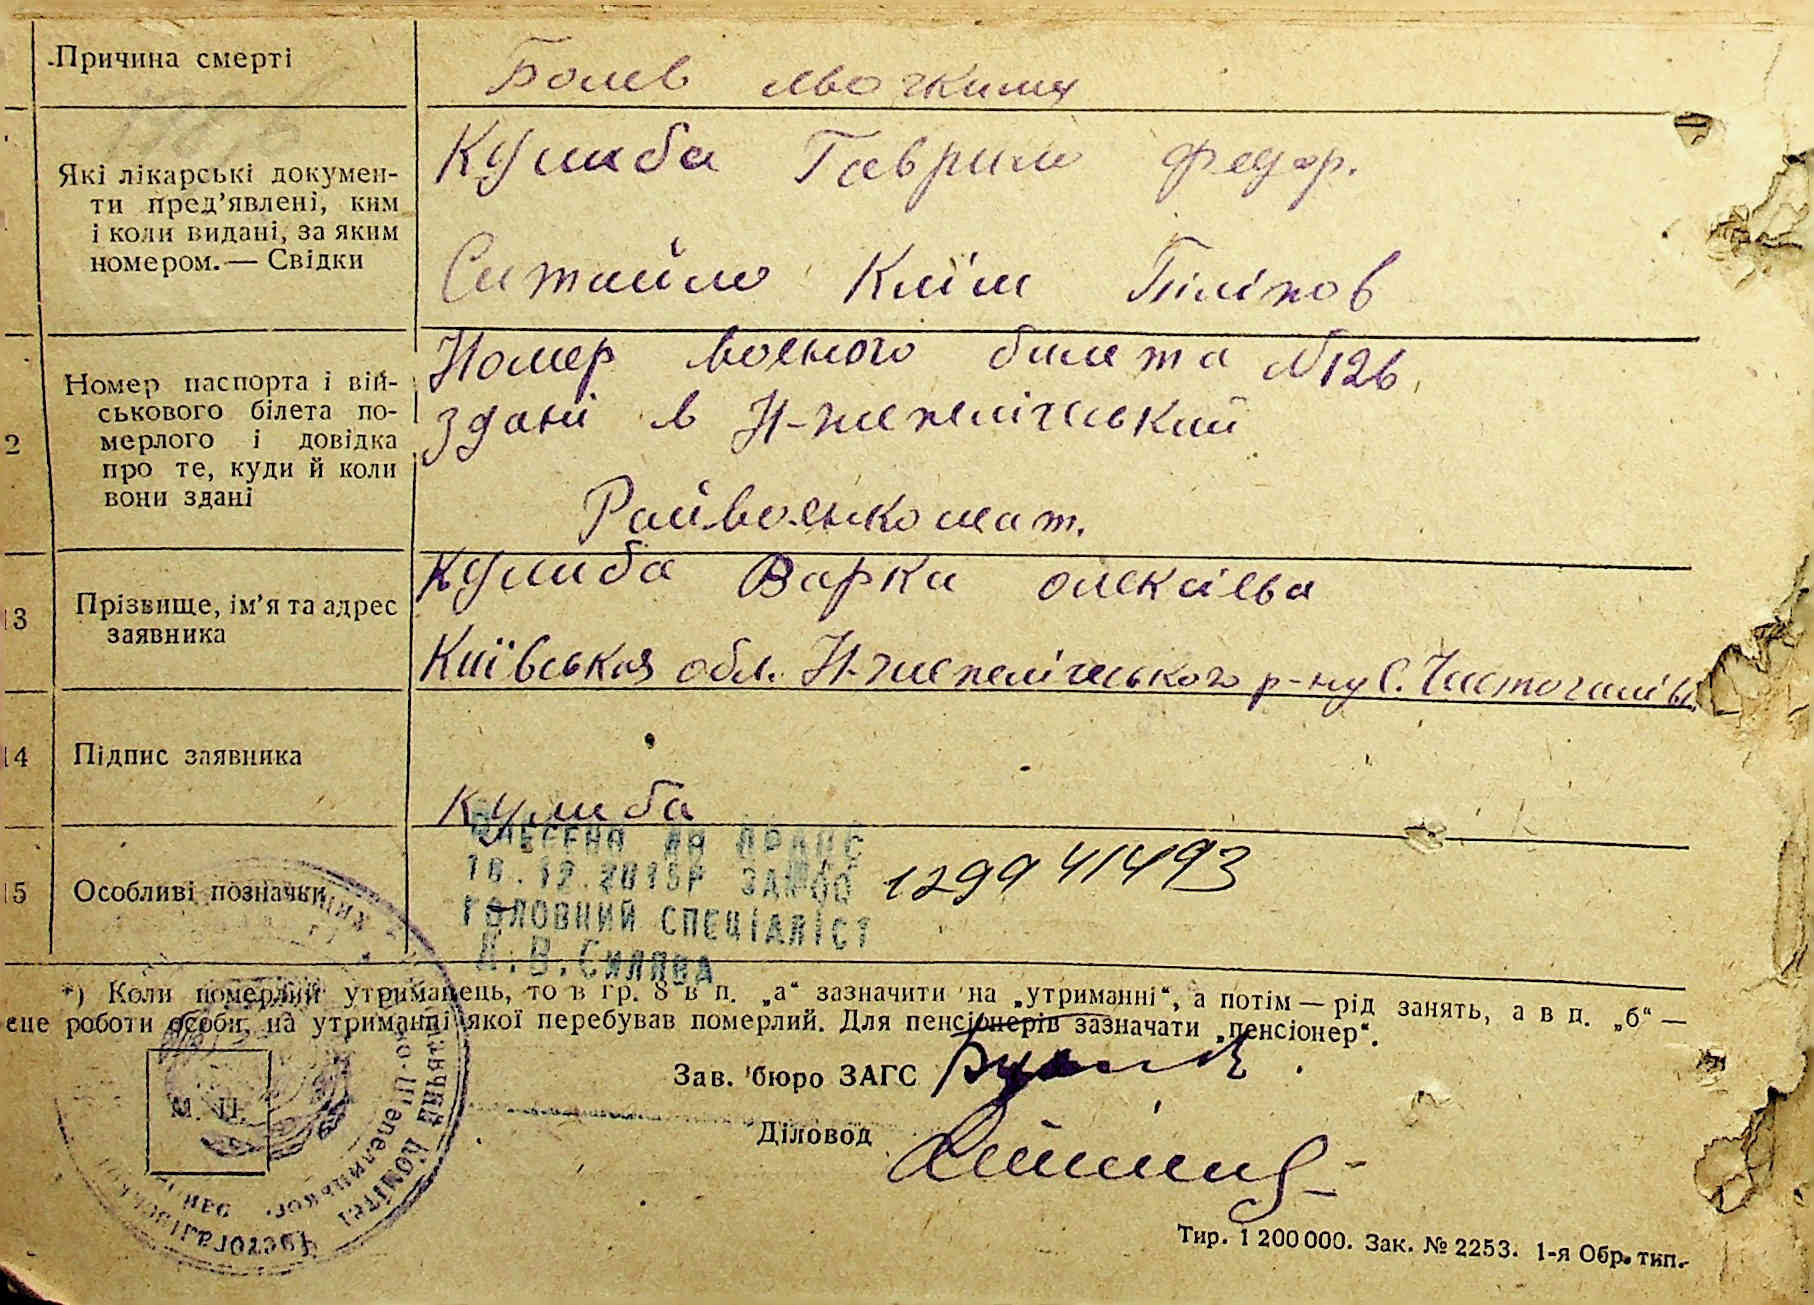 Причина смерті
Болев
Які лікарські докумен-
ти пред'явлені, ким
і коли видані, за яким
номером.— Свідки
Кулиба Гаврило Федор.
Ситайло Клім Піліпов
2
Номер паспорта і вій-
ськового білета по-
мерлого і довідка
про те, куди й коли
вони здані
Номер воєного билета №126
здані в Н-шепелічеський
Райвоєнкомат.
13
Прізвище, ім'я та адрес
заявника
Кулиба Варка
Київськая обл. Н-шепелічеського р-ну С. Чистогалівк
14
Підпис заявника
Кулиба
15
Особливі позначки
129941493
ГОЛОВНИЙ СПЕЦІАЛІСТ
*) Коли померлий утриманець, то в гр. 8 в п. „а“ зазначити на „утриманні“, а потім — рід занять, а в п. „б“ —
роботи особи, на утриманні якої перебував померлий. Для пенсіонерів зазначати „пенсіонер“.
Зав. бюро ЗАГС
Діловод
М. П.
Тир. 1 200 000. Зак. № 2253. 1-я Обр. тип.